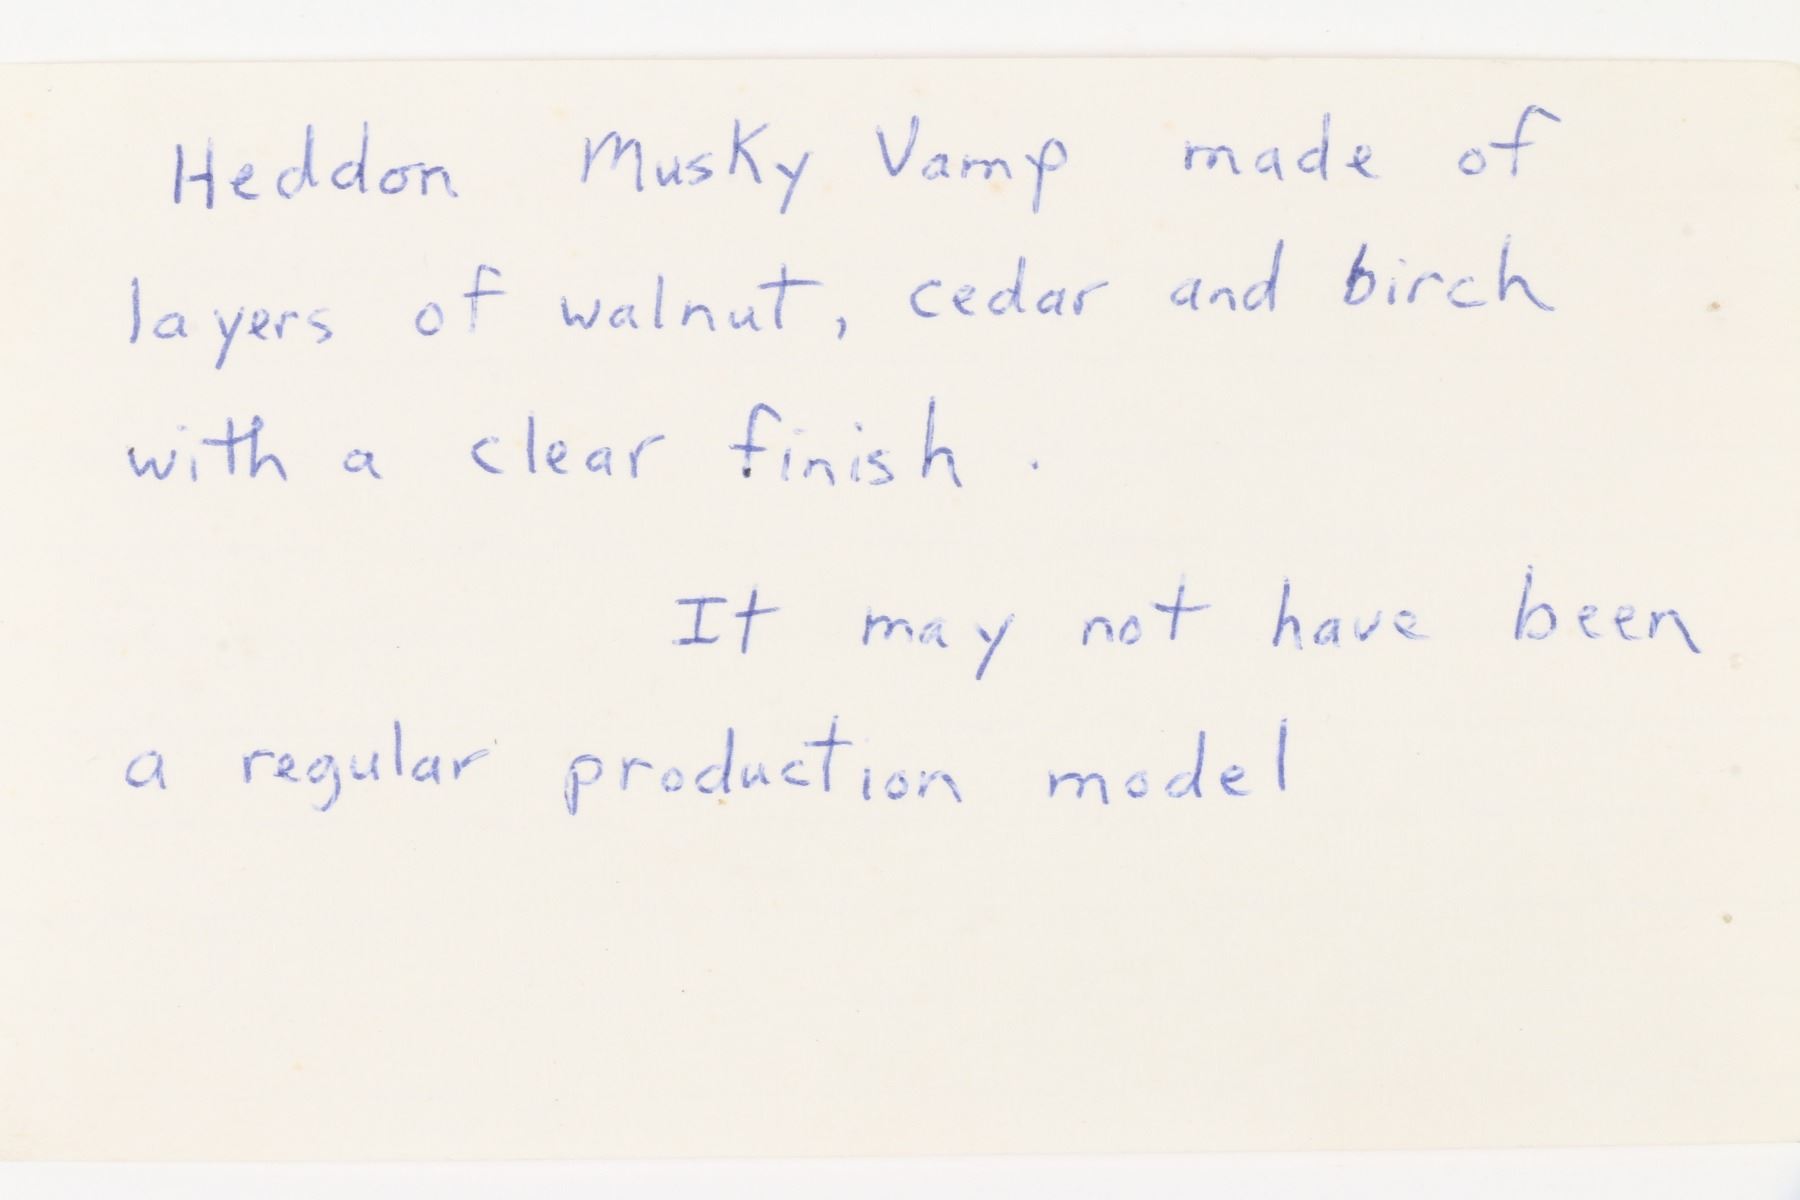 Heddon Musky Vamp made of
layers of walnut, cedar and birch
with a clear finish.
It may not have been
a regular production model